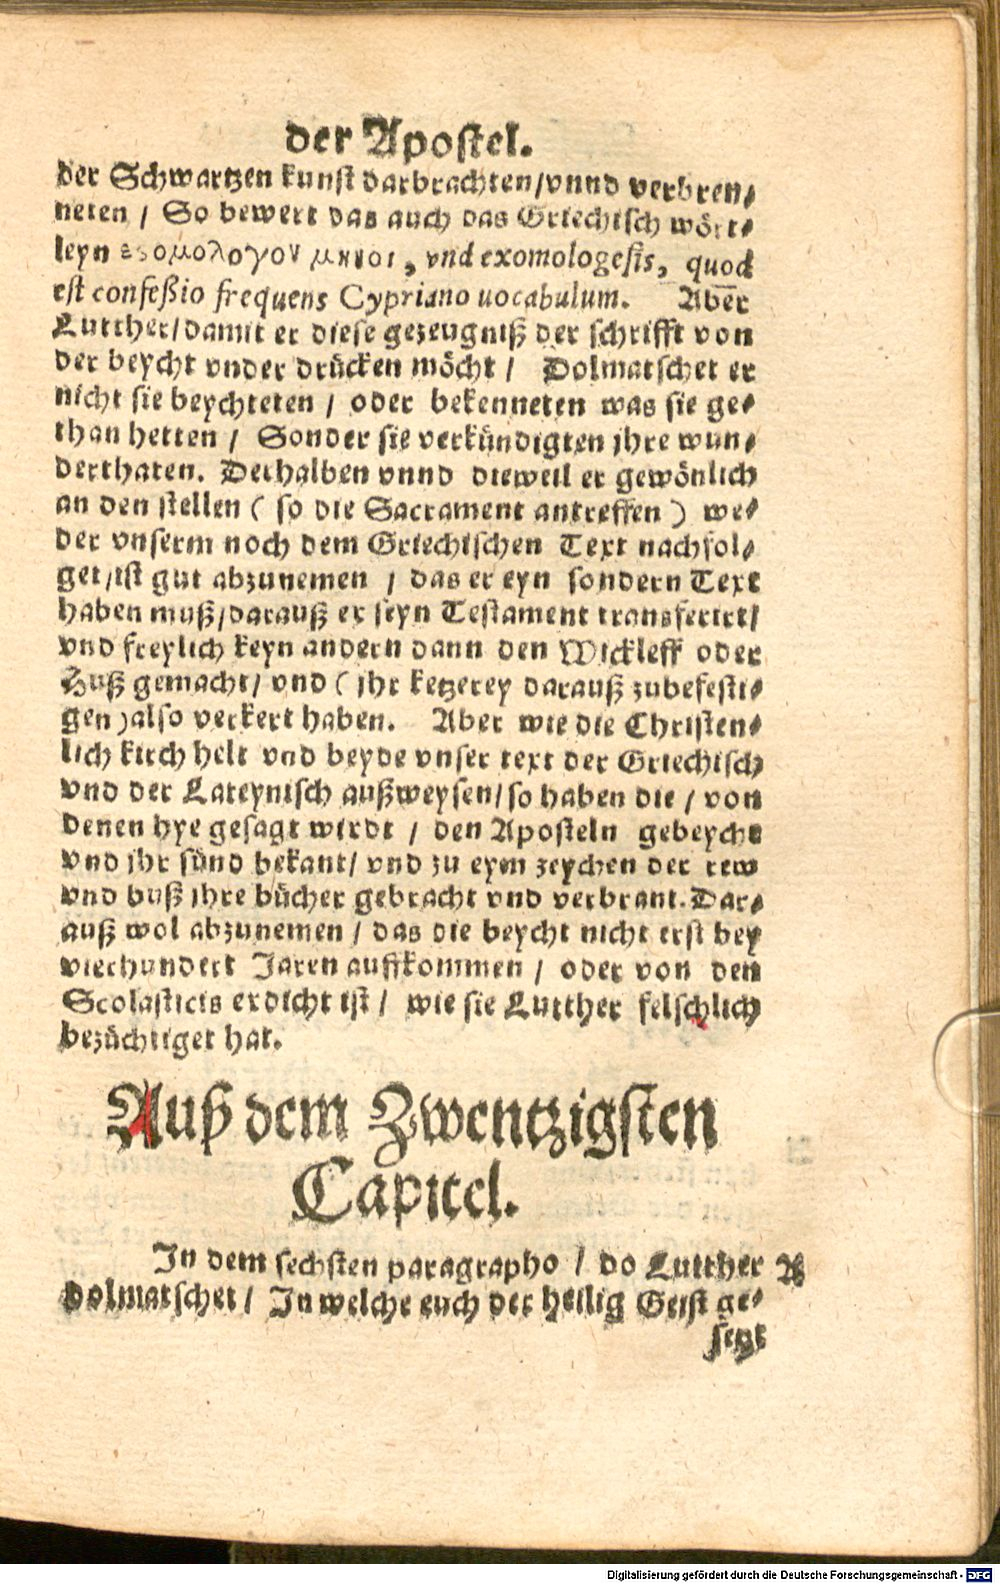 der Apostel.
der Schwartzen kunst darbrachten/vnnd verbren⸗
neten / So bewert das auch das Griechisch wört⸗
leyn εξομολογουμενοι, vnd exomologesis, quod
est confeßio frequens Cypriano uocabulum. Aber
Lutther/damit er diese gezeugniß der schrifft von
der beycht vnder drücken möcht / Dolmatschet er
nicht sie beychteten / oder bekenneten was sie ge⸗
than hetten / Sonder sie verkündigten jhre wun⸗
derthaten. Derhalben vnnd dieweil er gewönlich
an den stellen ( so die Sacrament antreffen ) we⸗
der vnserm noch dem Griechischen Text nachfol⸗
get/ist gut abzunemen / das er eyn sondern Text
haben muß/darauß er seyn Testament transferirt/
vnd freylich keyn andern dann den Wickleff oder
Huß gemacht/ vnd ( jhr ketzerey darauß zubefesti⸗
gen )also verkert haben. Aber wie die Christen⸗
lich kirch helt vnd beyde vnser text der Griechisch
vnd der Lateynisch außweysen/so haben die / von
denen hye gesagt wirdt / den Aposteln gebeycht
vnd jhr sünd bekant/ vnd zu eym zeychen der rew
vnd buß jhre bücher gebracht vnd verbrant. Dar⸗
auß wol abzunemen / das die beycht nicht erst bey
vierhundert Jaren auffkommen / oder von den
Scolasticis erdicht ist / wie sie Lutther felschlich
bezüchtiget hat.
Auß dem Zwentzigsten
Capitel.
In dem sechsten paragrapho / do Lutther A
dolmatschet / In welche euch der heilig Geist ge⸗
setzt
Digitalisierung gefördert durch die Deutsche Forschungsgemeinschaft - DFG